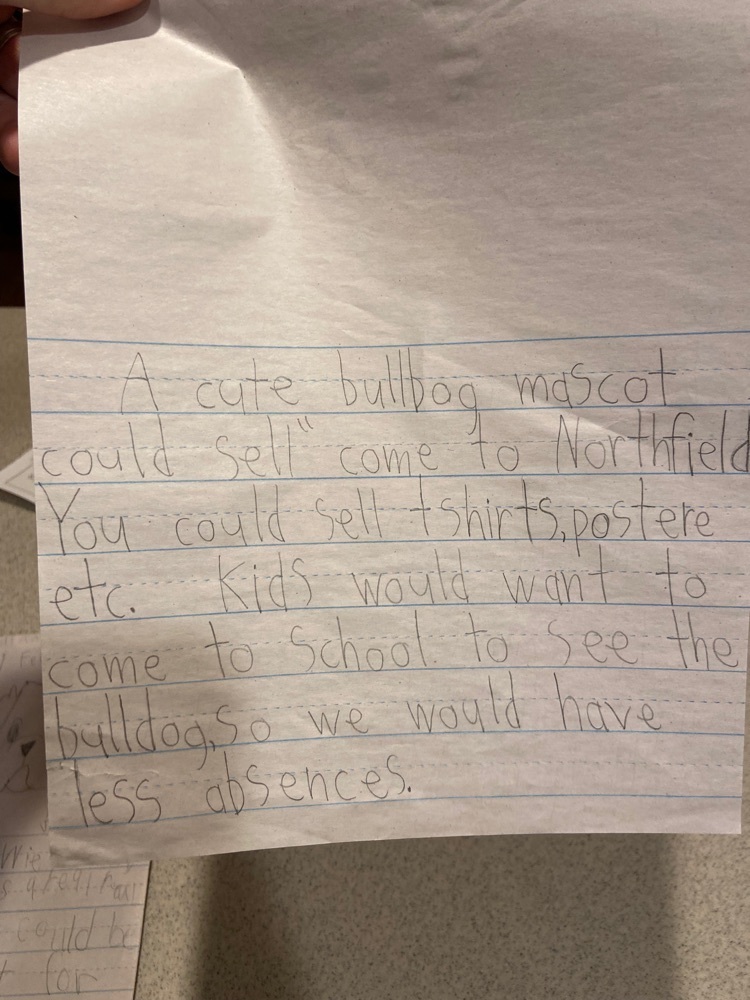 A cute bullbog mascot
could sell" come to Northfield
You could sell tshirts,postere
etc. Kids would want to
come to school to see the
bulldog,so we would have
less absences.
could be
for